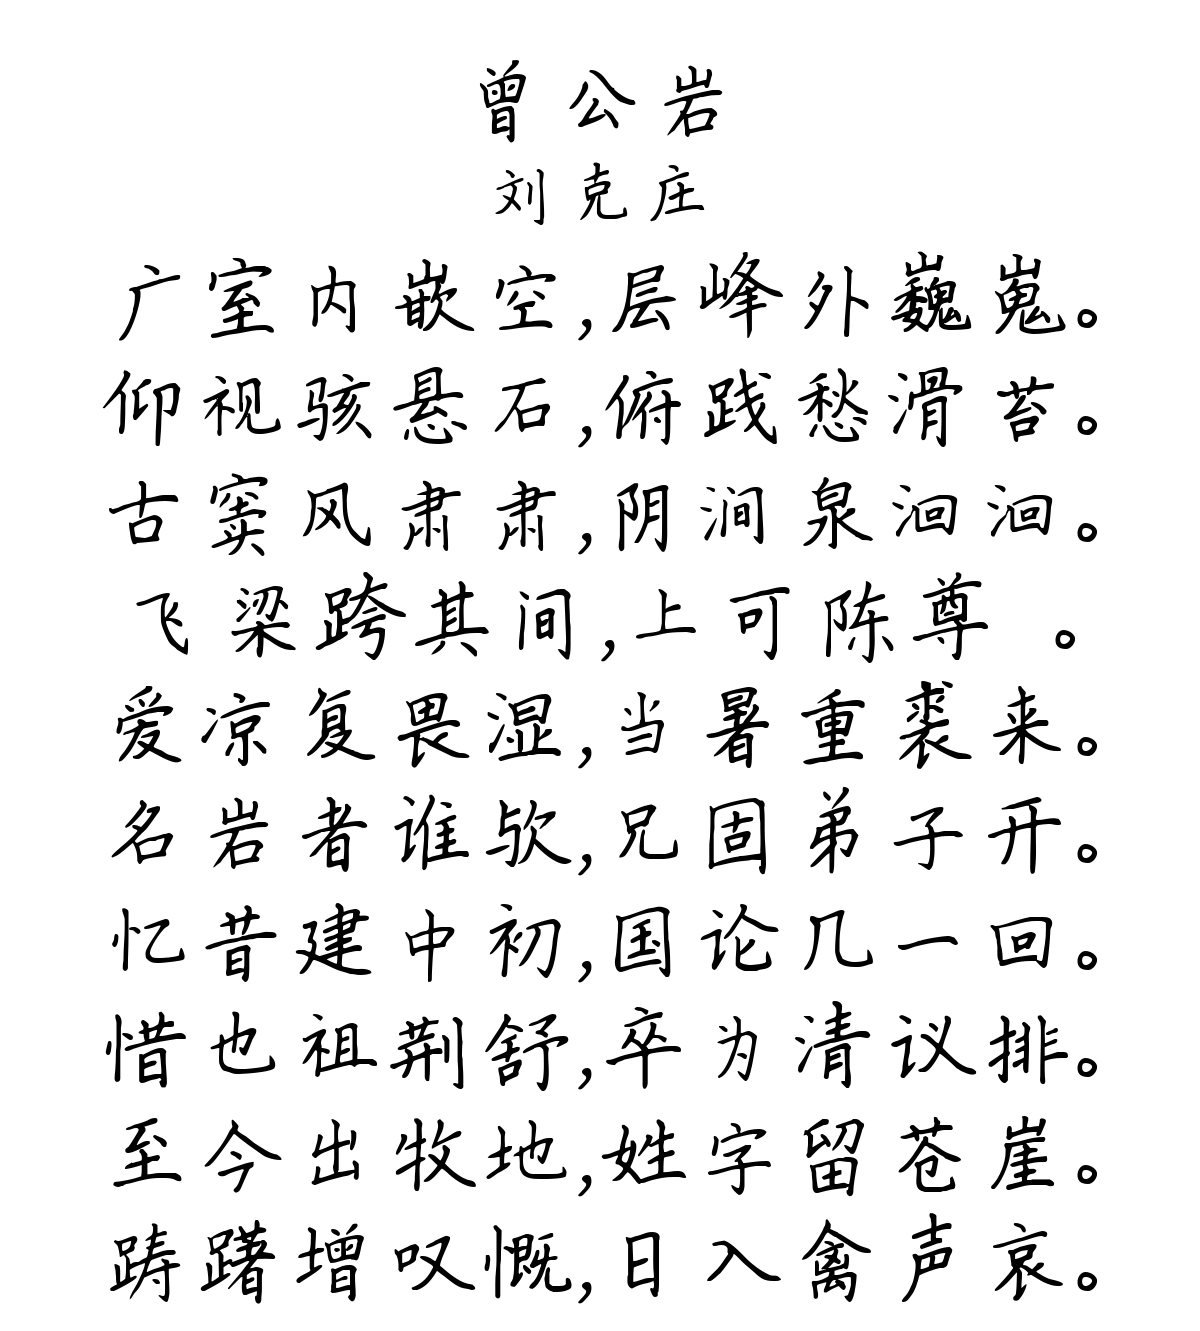 曾公岩
刘克庄
广室内嵌空,层峰外巍嵬。
仰视骇悬石,俯践愁滑苔。
古窦风肃肃,阴涧泉洄洄。
飞梁跨其间,上可陈尊 。
爱凉复畏湿,当暑重裘来。
名岩者谁欤,兄固弟子开。
忆昔建中初,国论几一回。
惜也祖荆舒,卒为清议排。
至今出牧地,姓字留苍崖。
踌躇增叹慨,日入禽声哀。